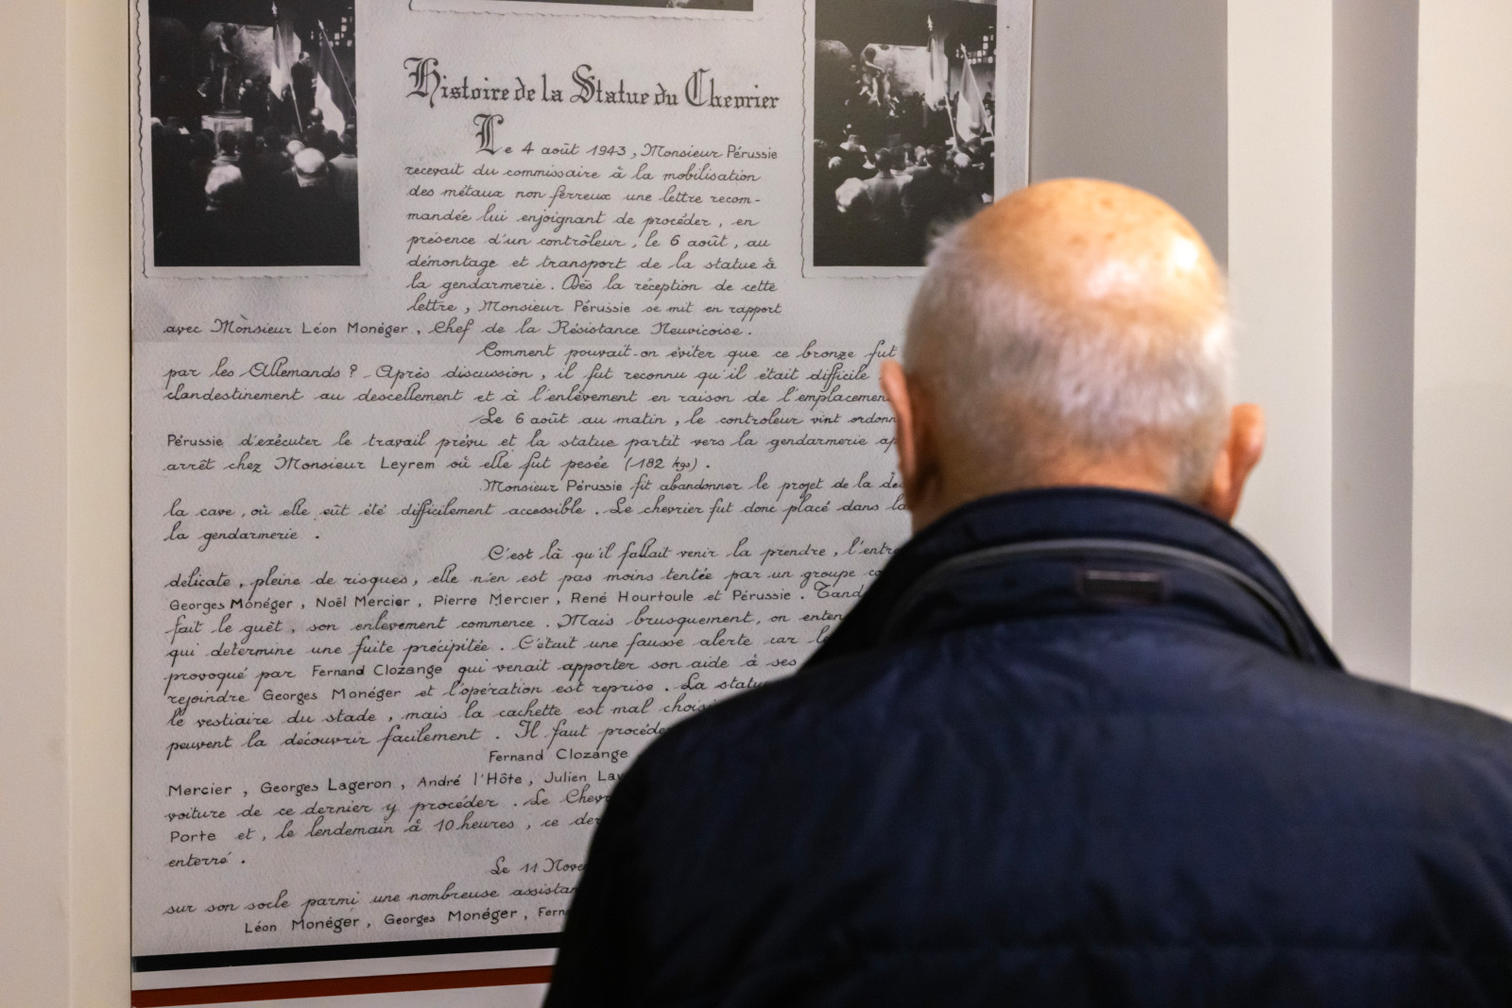 Histoire de la Statue du Chevrier
Le 4 août 1943, Monsieur Pérussie
recevait du commissaire à la mobilisation
des métaux non ferreux une lettre recom-
mandée lui enjoignant de procéder, en
présence d'un contrôleur, le 6 août, au
démontage et transport de la statue à
la gendarmerie. Dès la réception de cette
lettre, Monsieur Pérussie se mit en rapport
avec Monsieur Léon Monéger, Chef de la Résistance Neuvicoise.
Comment pouvait-on éviter que ce bronze fut
par les Allemands ? Après discussion, il fut reconnu qu'il était difficile
clandestinement au descellement et à l'enlèvement en raison de
Le 6 août au matin, le controleur vint
Pérussie d'exécuter le travail prévu et la statue partit vers la gendarmerie
arrêt chez Monsieur Leyrem où elle fut pesée (182 kgs).
Monsieur Pérussie fit abandonner le projet de la
la cave, où elle eût été difficilement accessible. Le chevrier fut donc placé dans
la gendarmerie.
C'est là qu'il fallait venir la prendre,
délicate, pleine de risques, elle n'en est pas moins tentée par un groupe
Georges Monéger, Noël Mercier, Pierre Mercier, René Hourtoule et Pérussie.
fait le guêt, son enlèvement commence. Mais brusquement, on
qui détermine une fuite précipitée. C'était une fausse alerte car
provoqué par Fernand Clozange qui venait apporter son aide à ses
rejoindre Georges Monéger et l'opération est reprise. La
le vestiaire du stade, mais la cachette est mal
peuvent la découvrir facilement. Il faut
Fernand Clozange
Mercier, Georges Lageron, André l'Hôte, Julien
voiture de ce dernier y procéder. Le
Porte et, le lendemain à 10 heures, ce
enterré.
Le 11
sur son socle parmi une nombreuse
Léon Monéger, Georges Monéger,